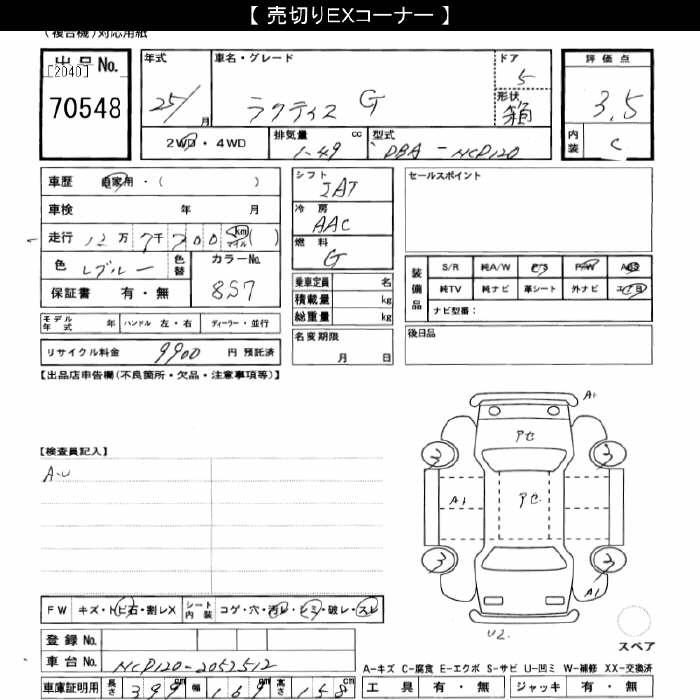 【 売切りEXコーナー 】
(複合機)対応用紙
出品No.
[2040]
70548
年式
25/ 月
車名・グレード
ラクティス G
ドア
5
形状
箱
2WD・4WD
排気量 cc
1.49
型式
DBA-NCP120
評価点
3.5
内装
C
車歴 自家用・( )
車検 年 月
走行 12万7千200 km マイル ( )
色 Lブルー 色替
カラーNo.
8S7
保証書 有・無
モデル年式 年 ハンドル 左・右 ディーラー・並行
リサイクル料金 9900 円 預託済
シフト
IAT
冷房
AAC
燃料
G
乗車定員 名
積載量 kg
総重量 kg
名変期限
月 日
セールスポイント
装備品
S/R 純A/W P/S P/W ABS
純TV 純ナビ 革シート 外ナビ エアB
ナビ型番:
後日品
【出品店申告欄(不良箇所・欠品・注意事項等)】
【検査員記入】
A-U
A1
PC
3
3
A1
PC
3
3
A1
U2.
スペア
FW キズ・トビ石・割レX シート内装 コゲ・穴・汚レ・シミ・破レ・スレ
登録No.
車台No. NCP120-2052512
車庫証明用 長さ 399 cm 幅 169 cm 高さ 158 cm
A-キズ C-腐食 E-エクボ S-サビ U-凹ミ W-補修 XX-交換済
工具 有・無 ジャッキ 有・無